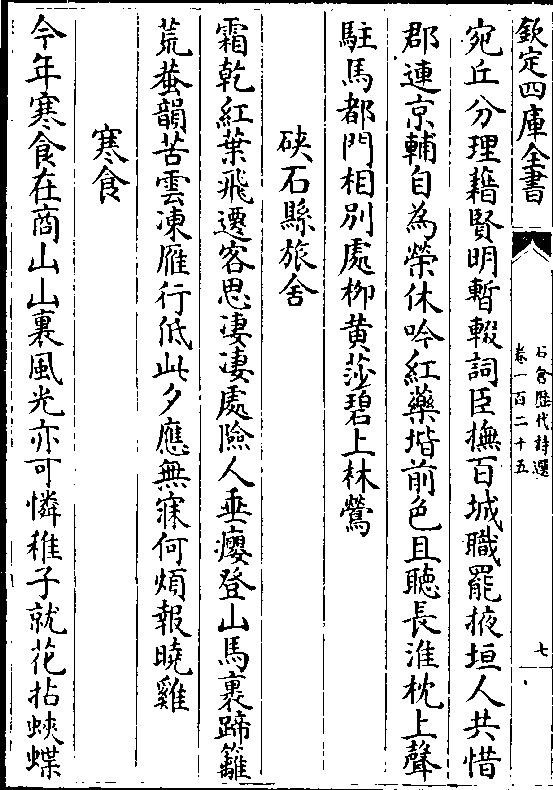 欽定四庫全書
石倉歷代詩選
卷一百二十五
七
宛丘分理藉賢明暫輟詞臣撫百城職罷掖垣人共惜
郡連京輔自為榮休吟紅藥堦前色且聽長淮枕上聲
駐馬都門相別處栁黄莎碧上林鶯
硤石縣旅舍
霜乾紅葉飛遷客思淒淒處險人垂癭登山馬裹蹄籬
荒蛬韻苦雲凍雁行低此夕應無寐何煩報曉雞
寒食
今年寒食在商山山裏風光亦可憐稚子就花拈蛺蝶